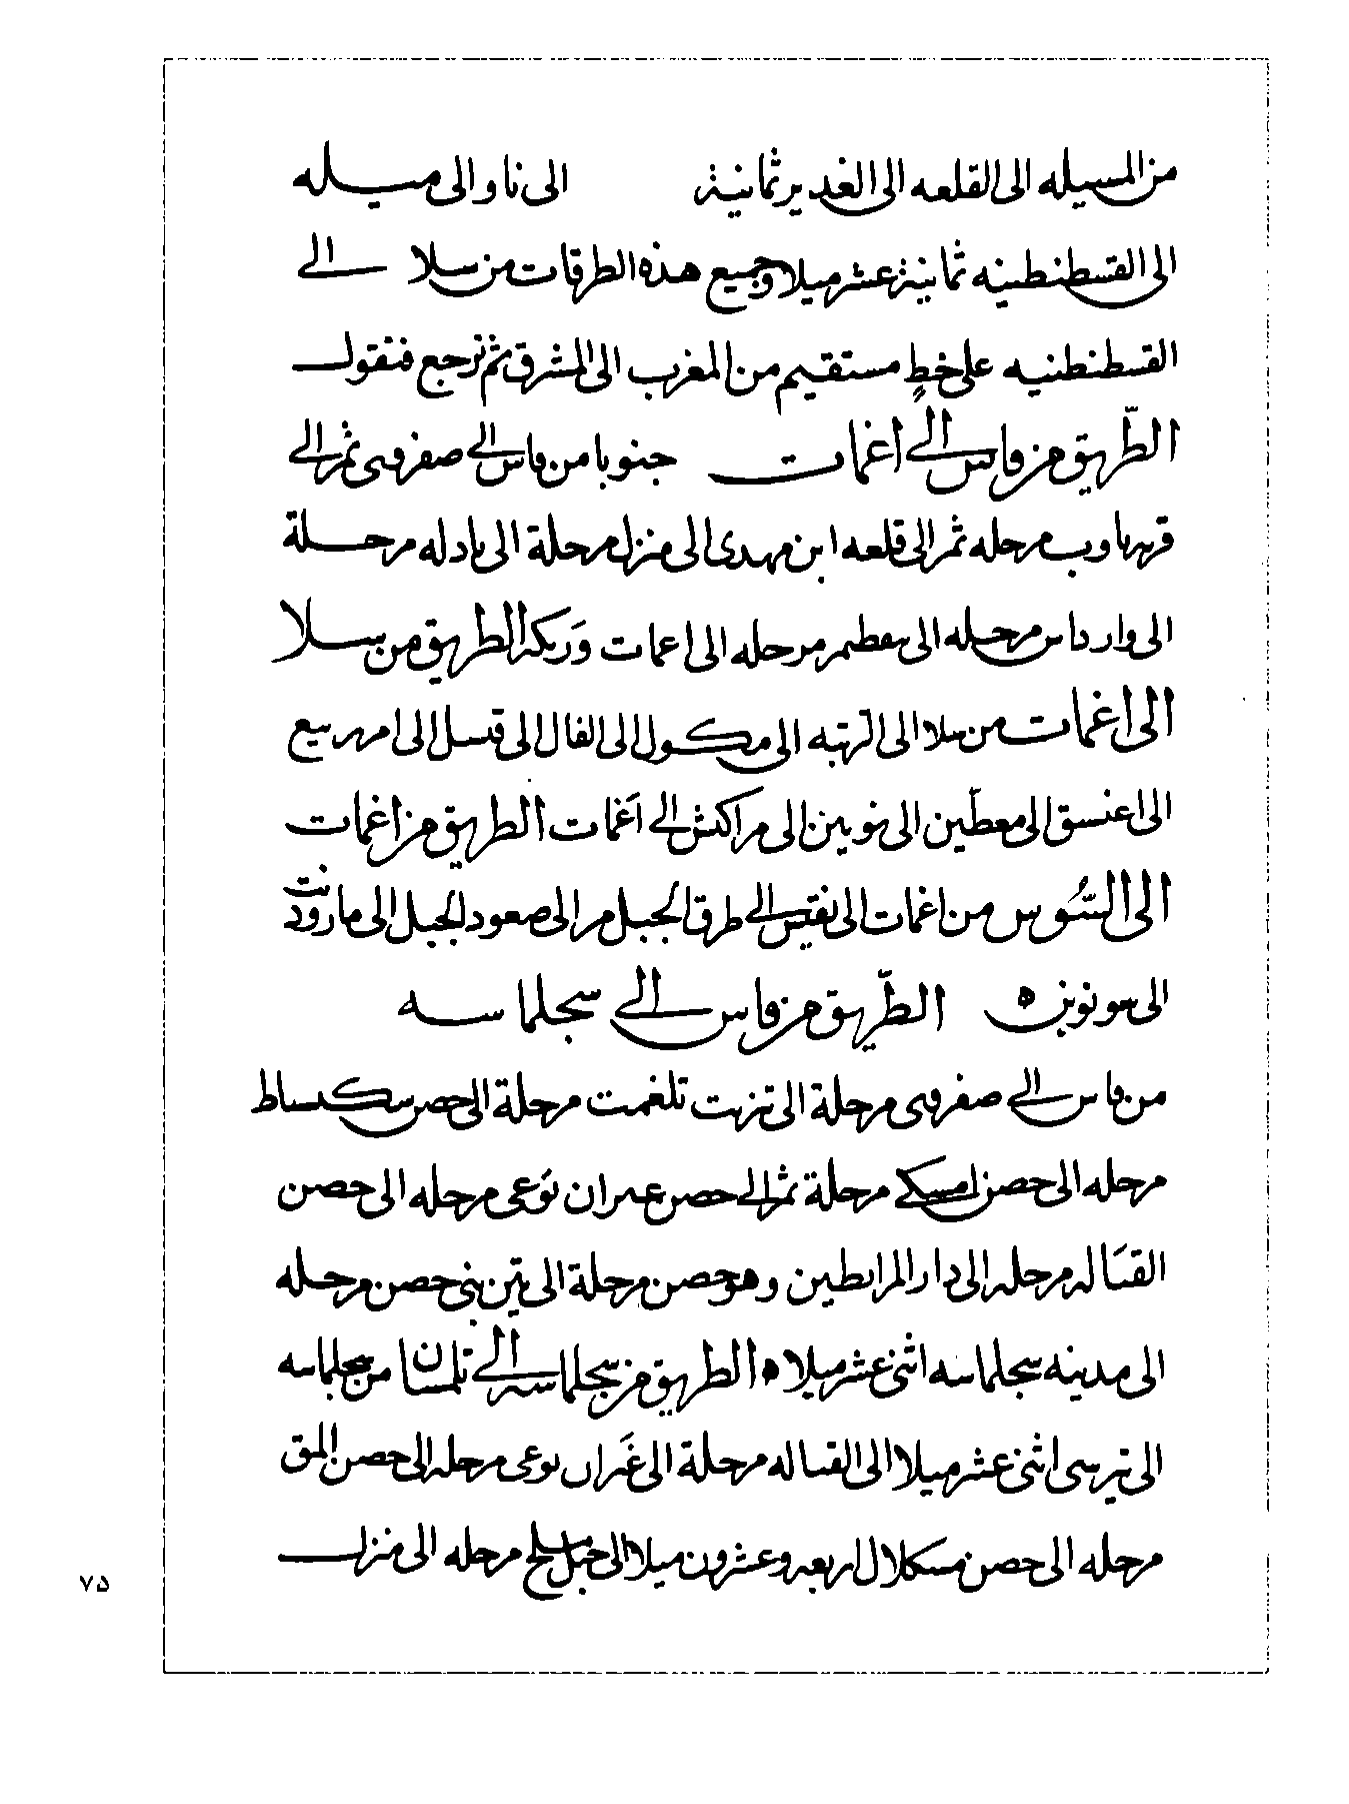 من المسيله الى القلعه الى الغدير ثمانية الى تاو الى ميله
الى القسطنطينه ثمانية عشر ميلا وجميع هذه الطرقات من سلا الى
القسطنطنيه على خطٍ مستقيم من المغرب الى المشرق ثم نرجع فنقول
الطّريق من فاس الى اغمات جنوبا من فاس الى صفروى ثم الى
مرحله ثم الى قلعه ابن مهدى الى منزل مرحلة الى تادله مرحلة
الى وارداس مرحله الى مرحله الى اعمات وَريكه الطريق من سلا
الى اغمات من سلا الى الى مكول الى الفال الى الى ام ربيع
الى الى الى مراكش الى اَغمات الطريق من اغمات
الى السُوس من اغمات الى نفيس الى طرق الجبل مر الى صعود الجبل الى
الى الطّريق من فاس الى سجلماسه
من فاس الى صفروى مرحلة الى تلغمت مرحلة الى حصن
مرحله الى حصن امسكى مرحلة ثم الى حصن عمران مرحله الى حصن
مرحله الى دار المرابطين وهو حصن مرحلة الى حصن مرحله
الى مدينه سجلماسه اثنى عشر ميلا ه الطريق من سجلماسه الى تلمسان من سجلماسه
الى اثنى عشر ميلا الى مرحلة الى مرحله الى حصن
مرحله الى حصن مسكلال اربعه وعشرون ميلا الى جبل مرحله الى منزل
٧٥